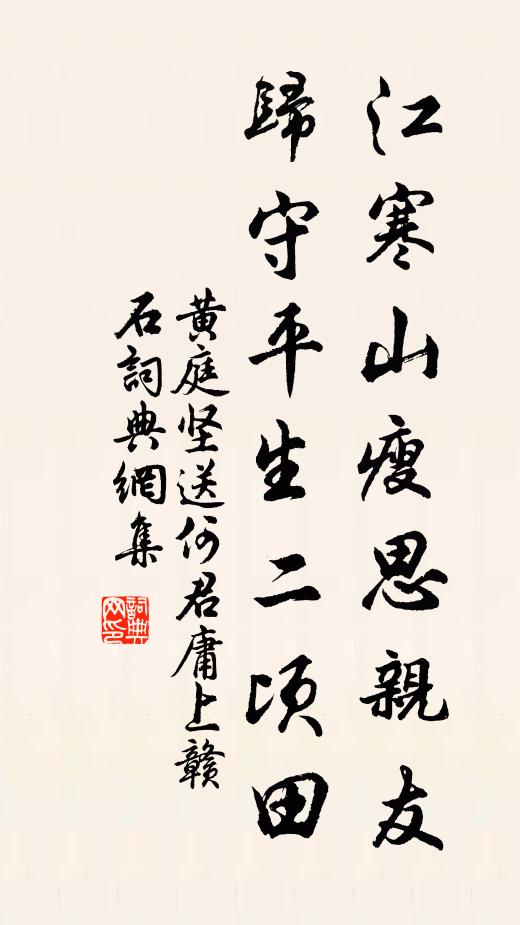 江寒山瘦思親友
歸守平生二頃田
黃庭坚送何君庸上贛
石詞典網集
詞典网印